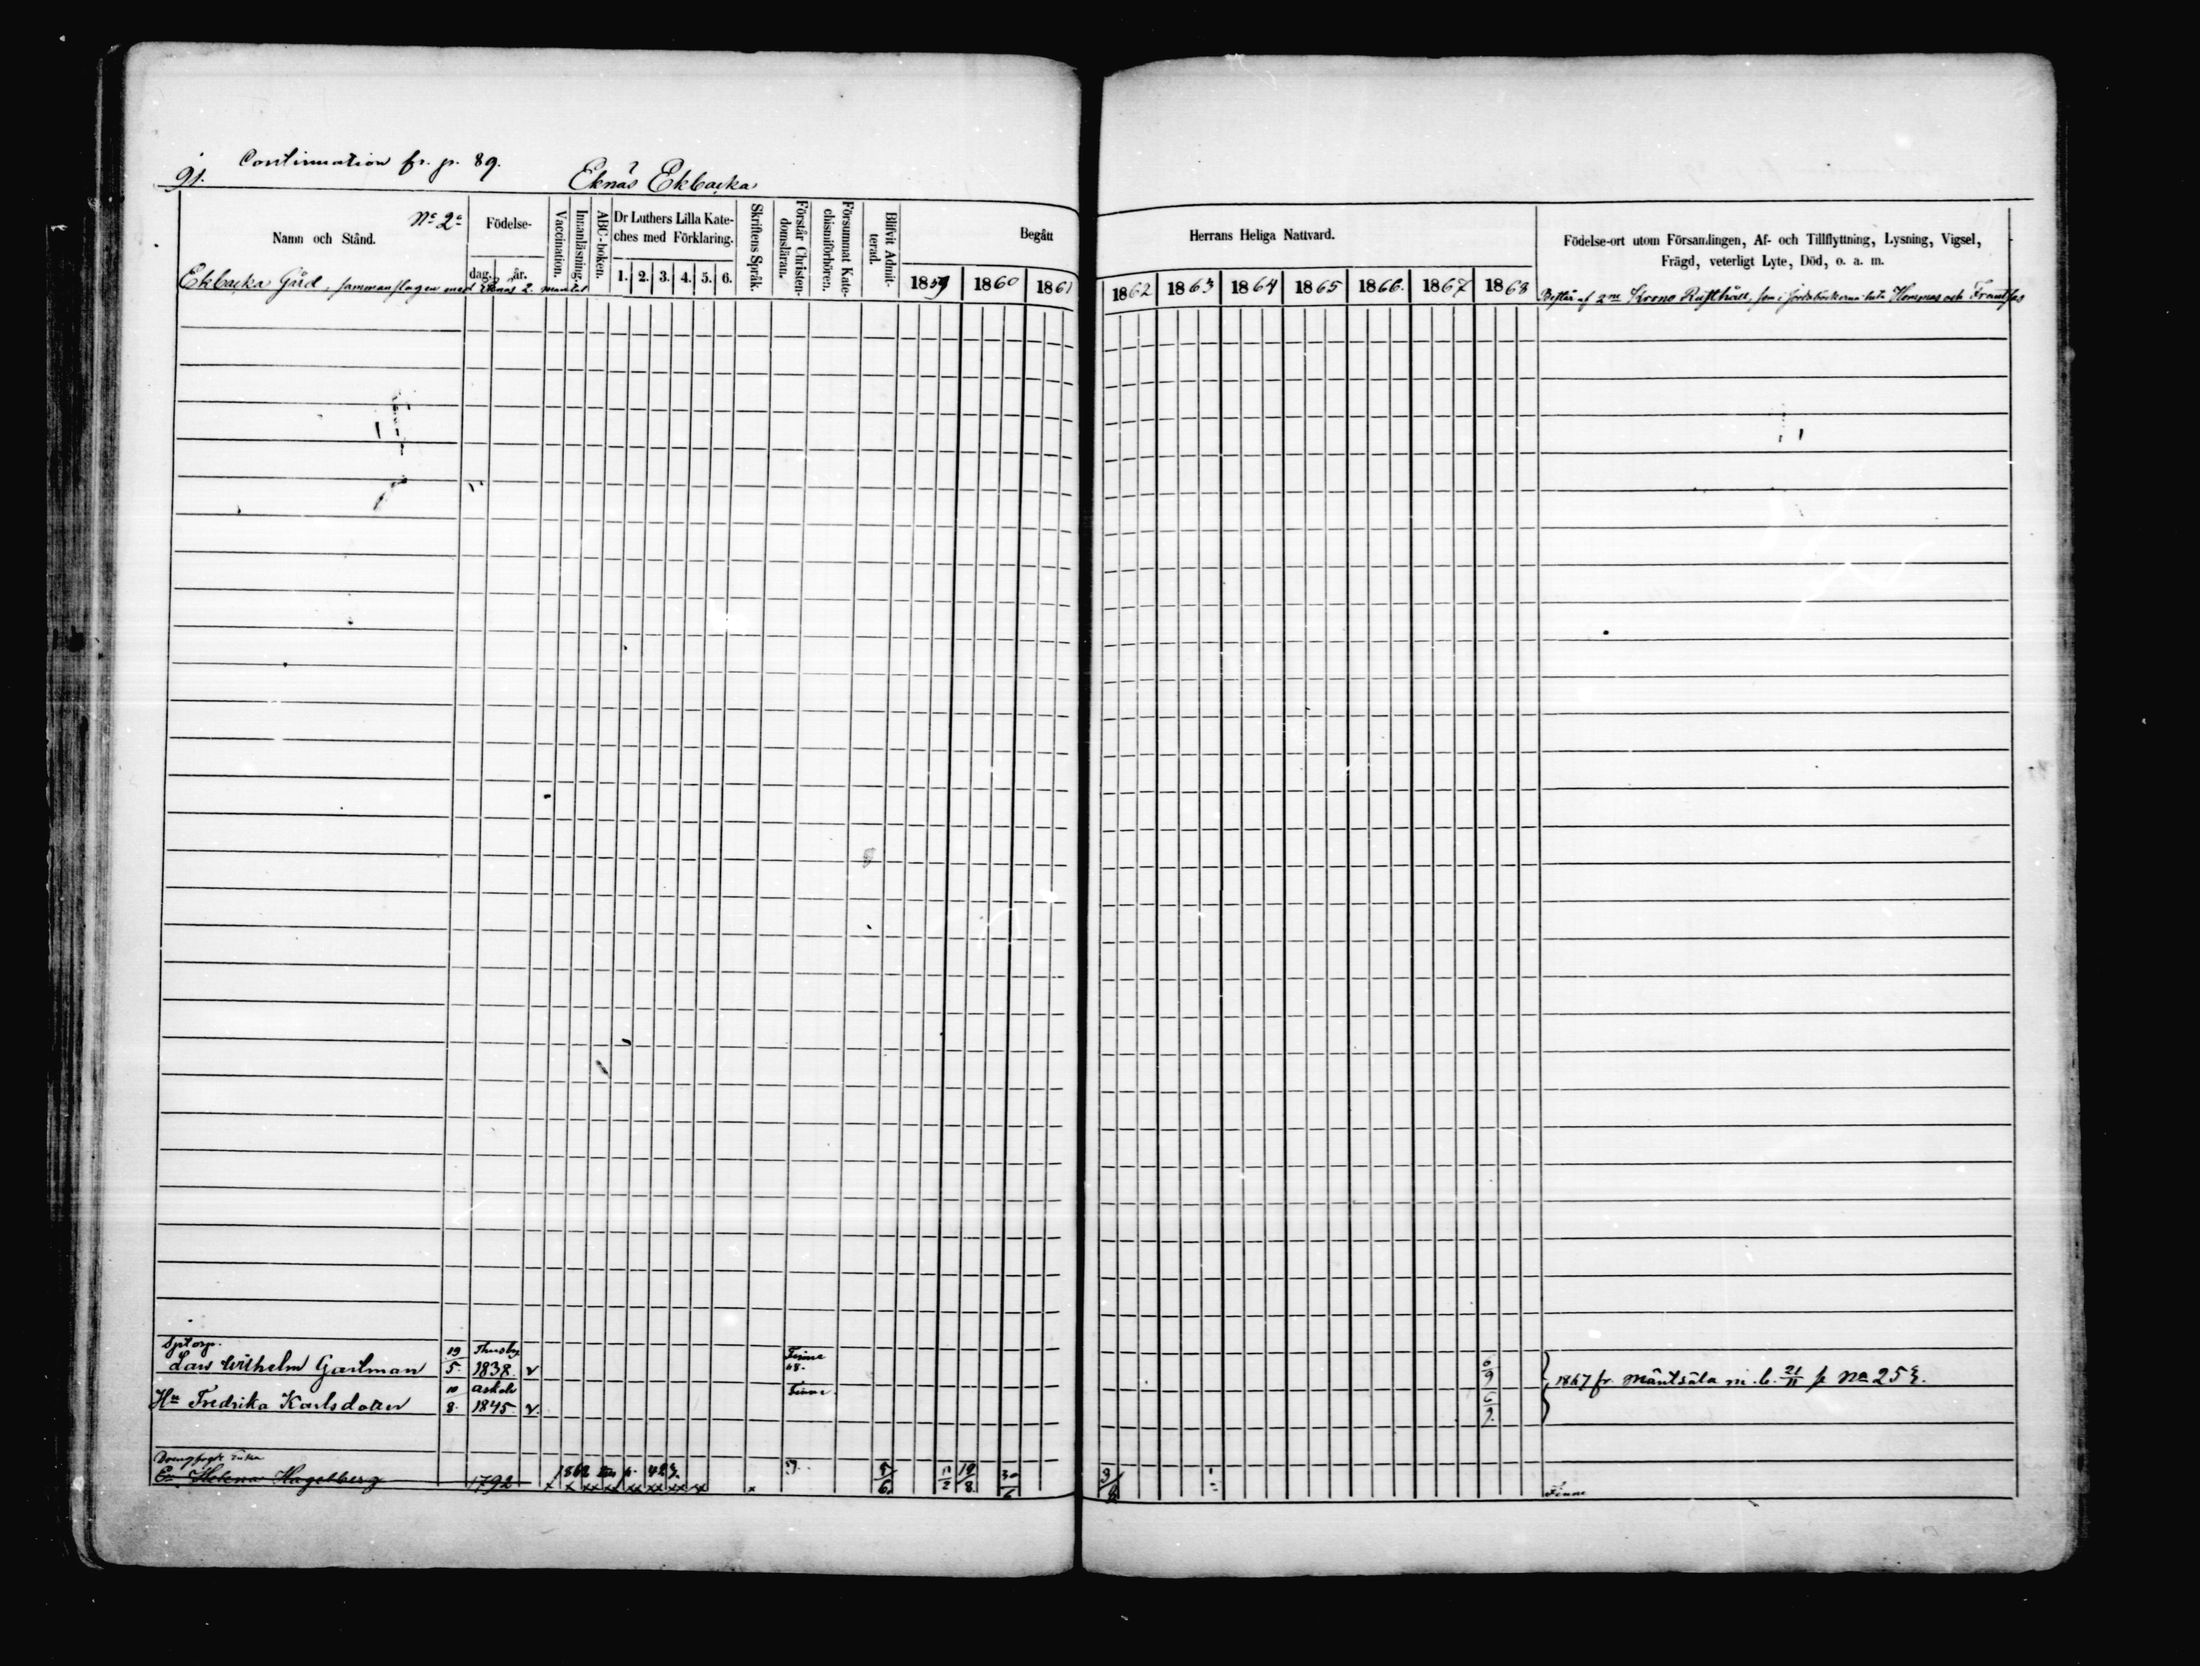 91.
Continuation fr. p. 89.
Eknäs Ekbacka
No 2o
Namn och Stånd.
Födelse-
dag.
år.
Vaccination.
Innanläsning.
ABC-boken.
Dr Luthers Lilla Kate-
ches med Förklaring.
1. 2. 3. 4. 5. 6.
Skriftens Språk.
Förstår Christen-
domsläran.
Försummat Kate-
chismiförhören.
Blifvit Admit-
terad.
Begått
1859 1860 1861
Herrans Heliga Nattvard.
1862 1863 1864 1865 1866. 1867 1868
Födelse-ort utom Församlingen, Af- och Tillflyttning, Lysning, Vigsel,
Frägd, veterligt Lyte, Död, o. a. m.
Ekbacka Gård, sammanslagen med Eknäs 2. mantal
Består af 2ne Krono Rusthåll, som i Jordeböckerna heta Hommas och
19 Thusby Finne
Lars Wilhelm Gartman 5. 1838. v 68. 6/9
1867 fr. Mäntsälä m. b. 21/11 p No 253.
10 Askola Finne
Hu Fredrika Karlsdotter 8. 1845. v. 6/9
Enka
Helena Hagelberg 1792
1862 p. 423.
59. 5/6 11/2 19/8 30/6
Finne